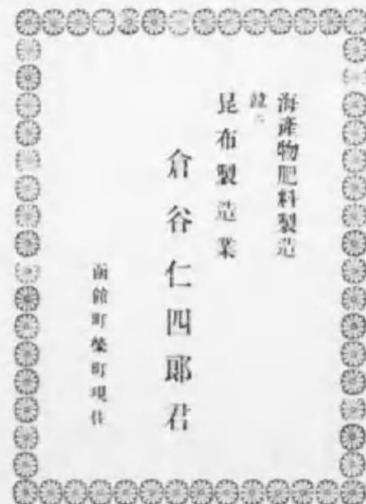 海產物肥料製造
竝ニ
昆布製造業
倉谷仁四郎君
函館町榮町現住